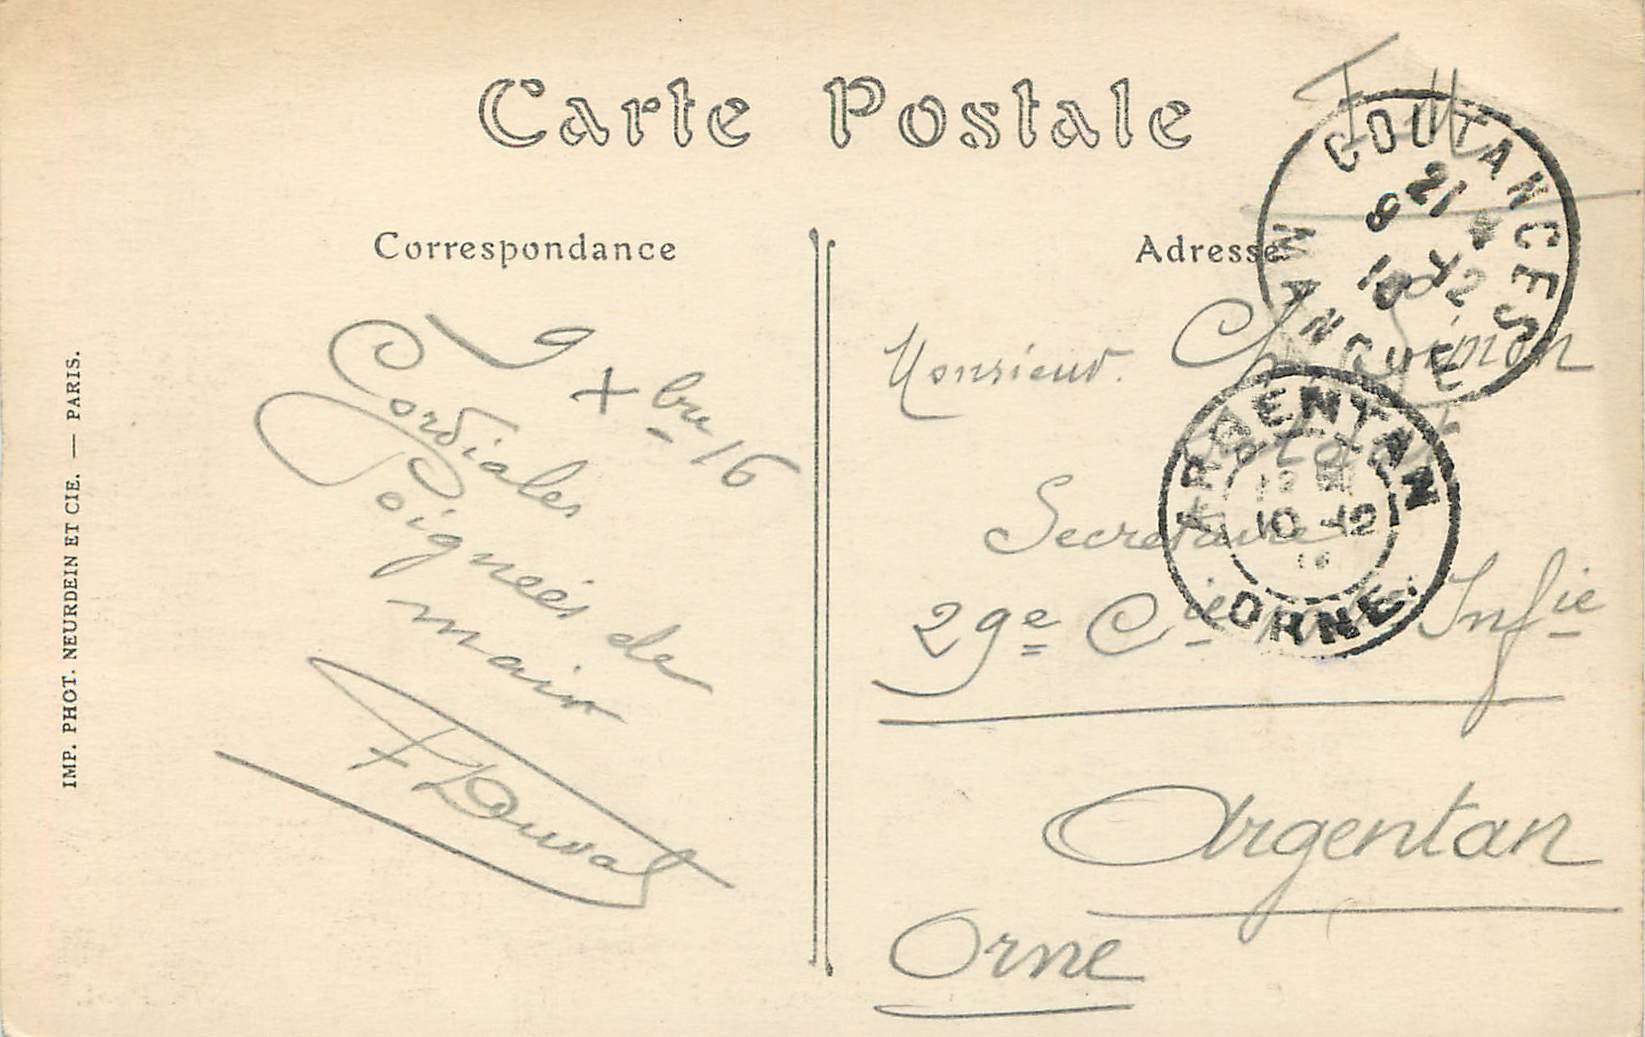 Carte Postale
Correspondance
Adresse
IMP. PHOT. NEURDEIN ET CIE. — PARIS.
9 Xbre 16
Cordiales
Poignées de
main
F Duval
F M
COUTANCES
21
9 12
16
MANCHE
Monsieur
Secrétaire
29e Cie Infie
Argentan
Orne
ARGENTAN
10 -12
16
ORNE